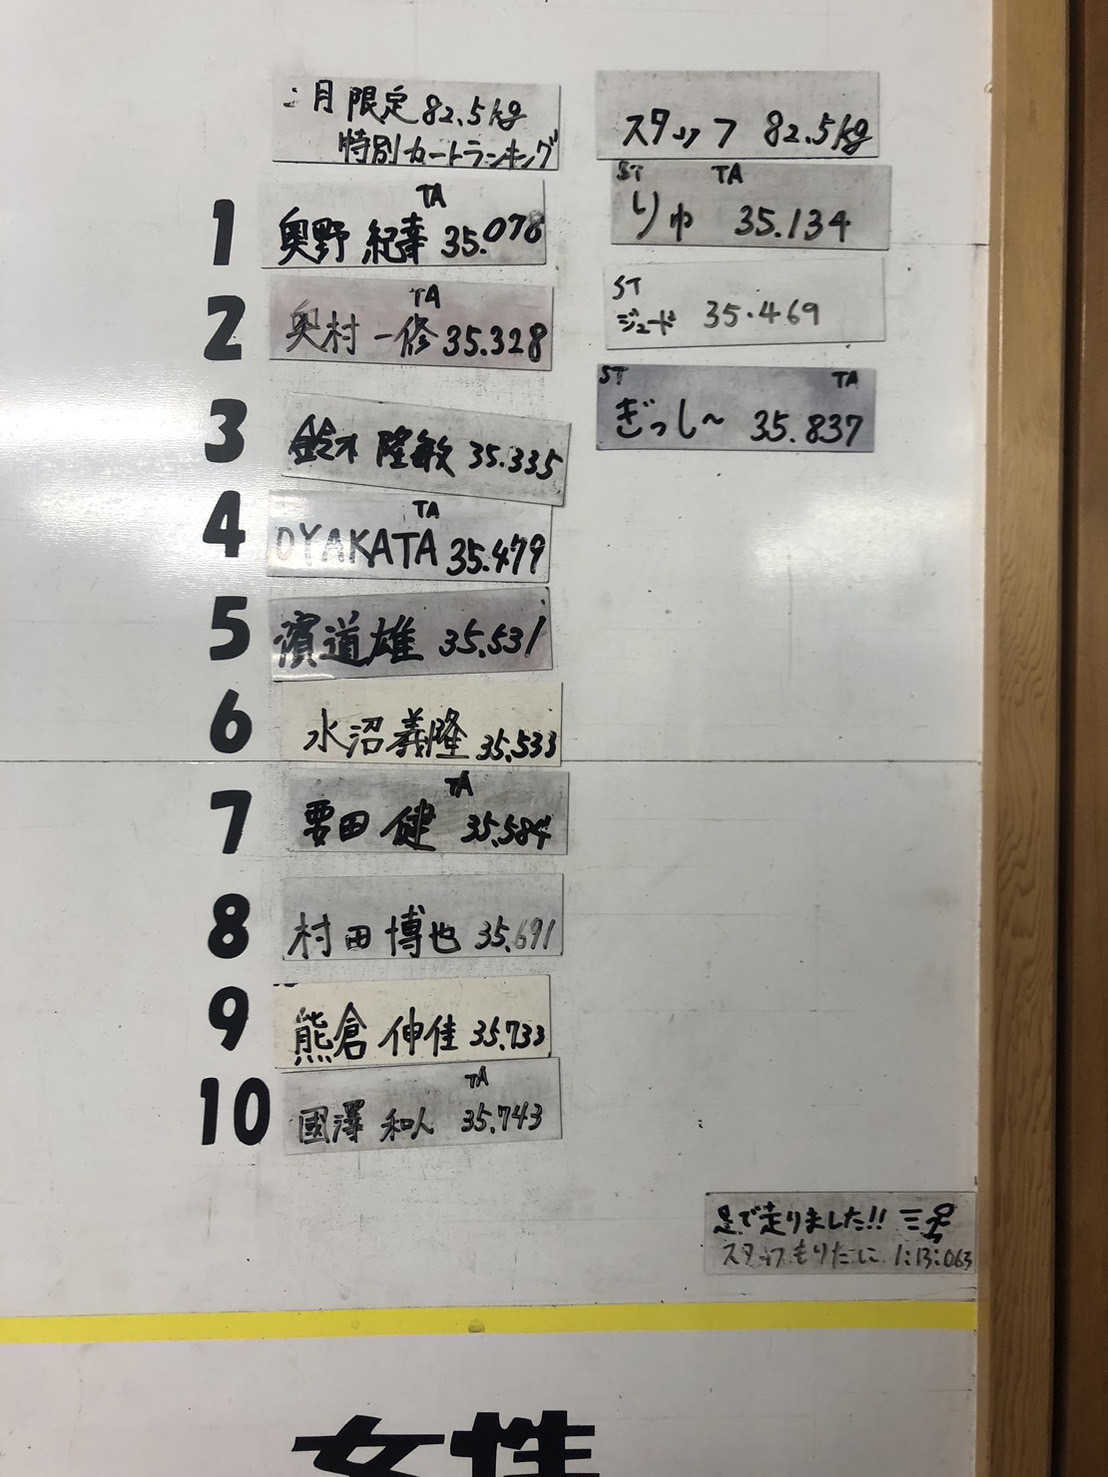 月限定82.5kg
特別カートランキング
1
TA
奥野 紀幸 35.078
2
TA
奥村 一修 35.328
3
鈴木 隆敏 35.335
4
TA
OYAKATA 35.479
5
濱道雄 35.531
6
水沼義隆 35.533
7
TA
要田 健 35.584
8
村田博也 35.691
9
熊倉 伸佳 35.733
10
TA
國澤 和人 35.743
スタッフ 82.5kg
ST TA
りゅ 35.134
ST
ジュード 35.469
ST TA
ぎっし〜 35.837
足で走りました!!
スタッフもりたに 1:13:063
女性